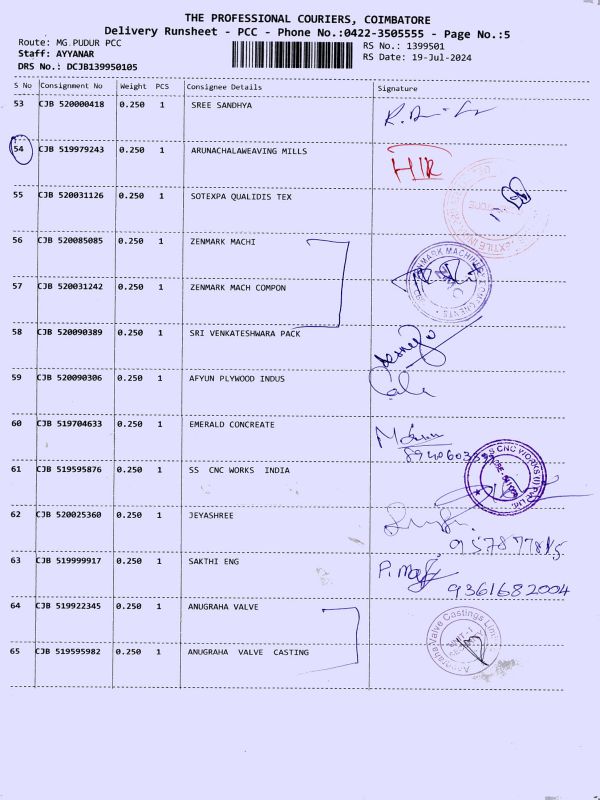 THE PROFESSIONAL COURIERS, COIMBATORE
Delivery Runsheet - PCC - Phone No.:0422-3505555 - Page No.:5
Route: MG PUDUR PCC
RS No.: 1399501
Staff: AYYANAR
RS Date: 19-Jul-2024
DRS No.: DCJB139950105
S No Consignment No Weight PCS Consignee Details Signature
53 CJB 520000418 0.250 1 SREE SANDHYA
54 CJB 519979243 0.250 1 ARUNACHALAWEAVING MILLS
55 CJB 520031126 0.250 1 SOTEXPA QUALIDIS TEX
56 CJB 520085085 0.250 1 ZENMARK MACHI
57 CJB 520031242 0.250 1 ZENMARK MACH COMPON
58 CJB 520090389 0.250 1 SRI VENKATESHWARA PACK
59 CJB 520090306 0.250 1 AFYUN PLYWOOD INDUS
60 CJB 519704633 0.250 1 EMERALD CONCREATE
61 CJB 519595876 0.250 1 SS CNC WORKS INDIA
SS CNC WORKS (I) PVT LTD.
62 CJB 520025360 0.250 1 JEYASHREE
63 CJB 519999917 0.250 1 SAKTHI ENG
9361682004
64 CJB 519922345 0.250 1 ANUGRAHA VALVE
Anugraha Valve Castings Limited
UNIT-I
65 CJB 519595982 0.250 1 ANUGRAHA VALVE CASTING